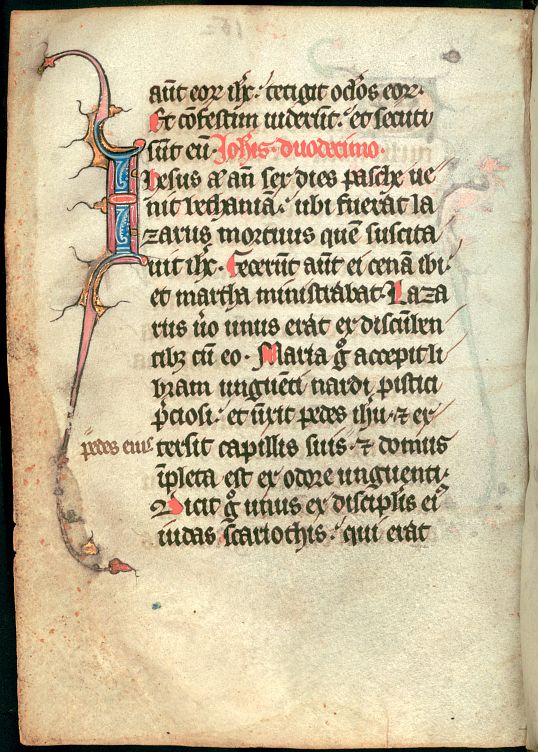 aūt eoꝝ ih̄c. tetigit oc̄los eoꝝ.
Et cōfestim uiderūt. et secuti
sūt eū. Joh̄is. duodecimo.
Iesus ꝗ an̄ sex dies pasche ue
nit bethaniā. ubi fuerat la
zarus mortuus quē suscita
uit ih̄c. Fecerūt aūt ei cenā ibi.
et martha ministrabat. Laza
rus ūo unus erat ex discūben
tibꝫ cū eo. Maria gͦ accepit li
bram unguēti nardi pistici
p̄ciosi. et ūxit pedes ih̄u. ⁊ ex
pedes eius
tersit capillis suis. ⁊ domus
īpleta est ex odore unguenti.
Dicit gͦ unus ex discipl̄is eiꝰ
iudas scariothis. qui erat